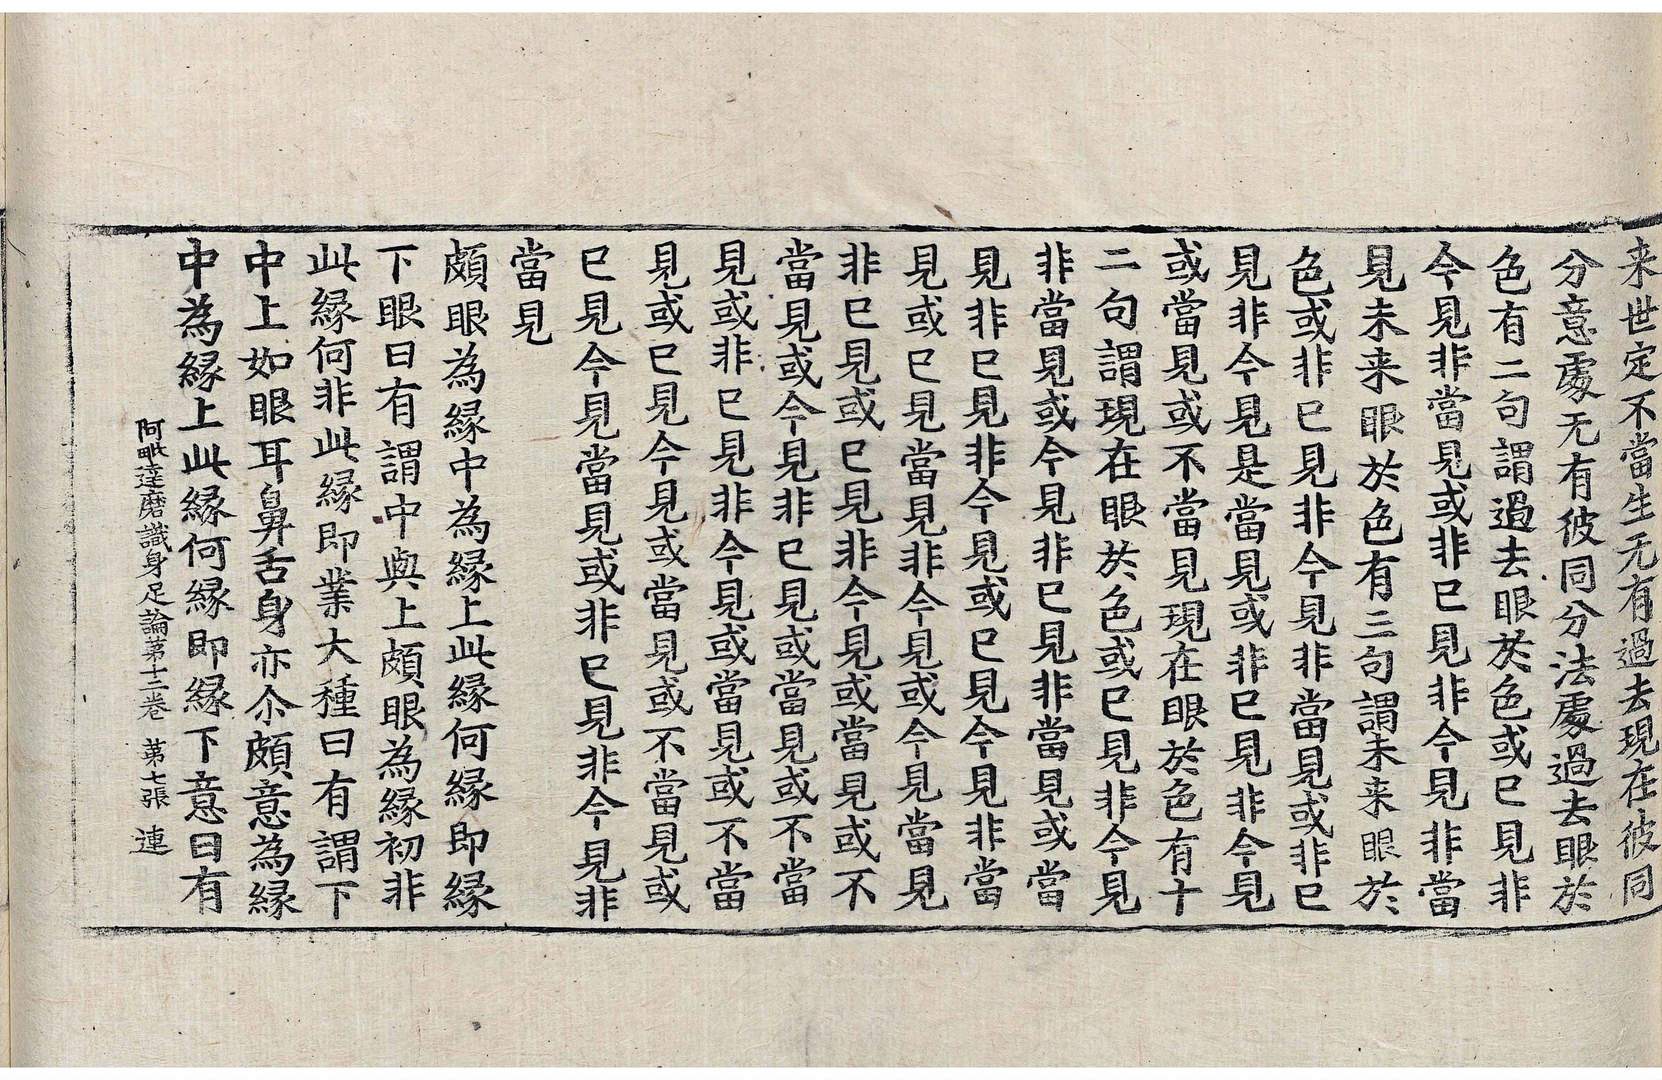 来世定不當生无有過去現在彼同
分意處无有彼同分法處過去眼於
色有二句謂過去眼於色或已見非
今見非當見或非已見非今見非當
見未来眼於色有三句謂未来眼於
色或非已見非今見非當見或非已
見非今見是當見或非已見非今見
或當見或不當見現在眼於色有十
二句謂現在眼於色或已見非今見
非當見或今見非已見非當見或當
見非已見非今見或已見今見非當
見或已見當見非今見或今見當見
非已見或已見非今見或當見或不
當見或今見非已見或當見或不當
見或非已見非今見或當見或不當
見或已見今見或當見或不當見或
已見今見當見或非已見非今見非
當見
頗眼為緣中為緣上此緣何緣即緣
下眼曰有謂中與上頗眼為緣初非
此緣何非此緣即業大種曰有謂下
中上如眼耳鼻舌身亦尒頗意為緣
中為緣上此緣何緣即緣下意曰有
阿毗達磨識身足論第十三卷 第七張 連